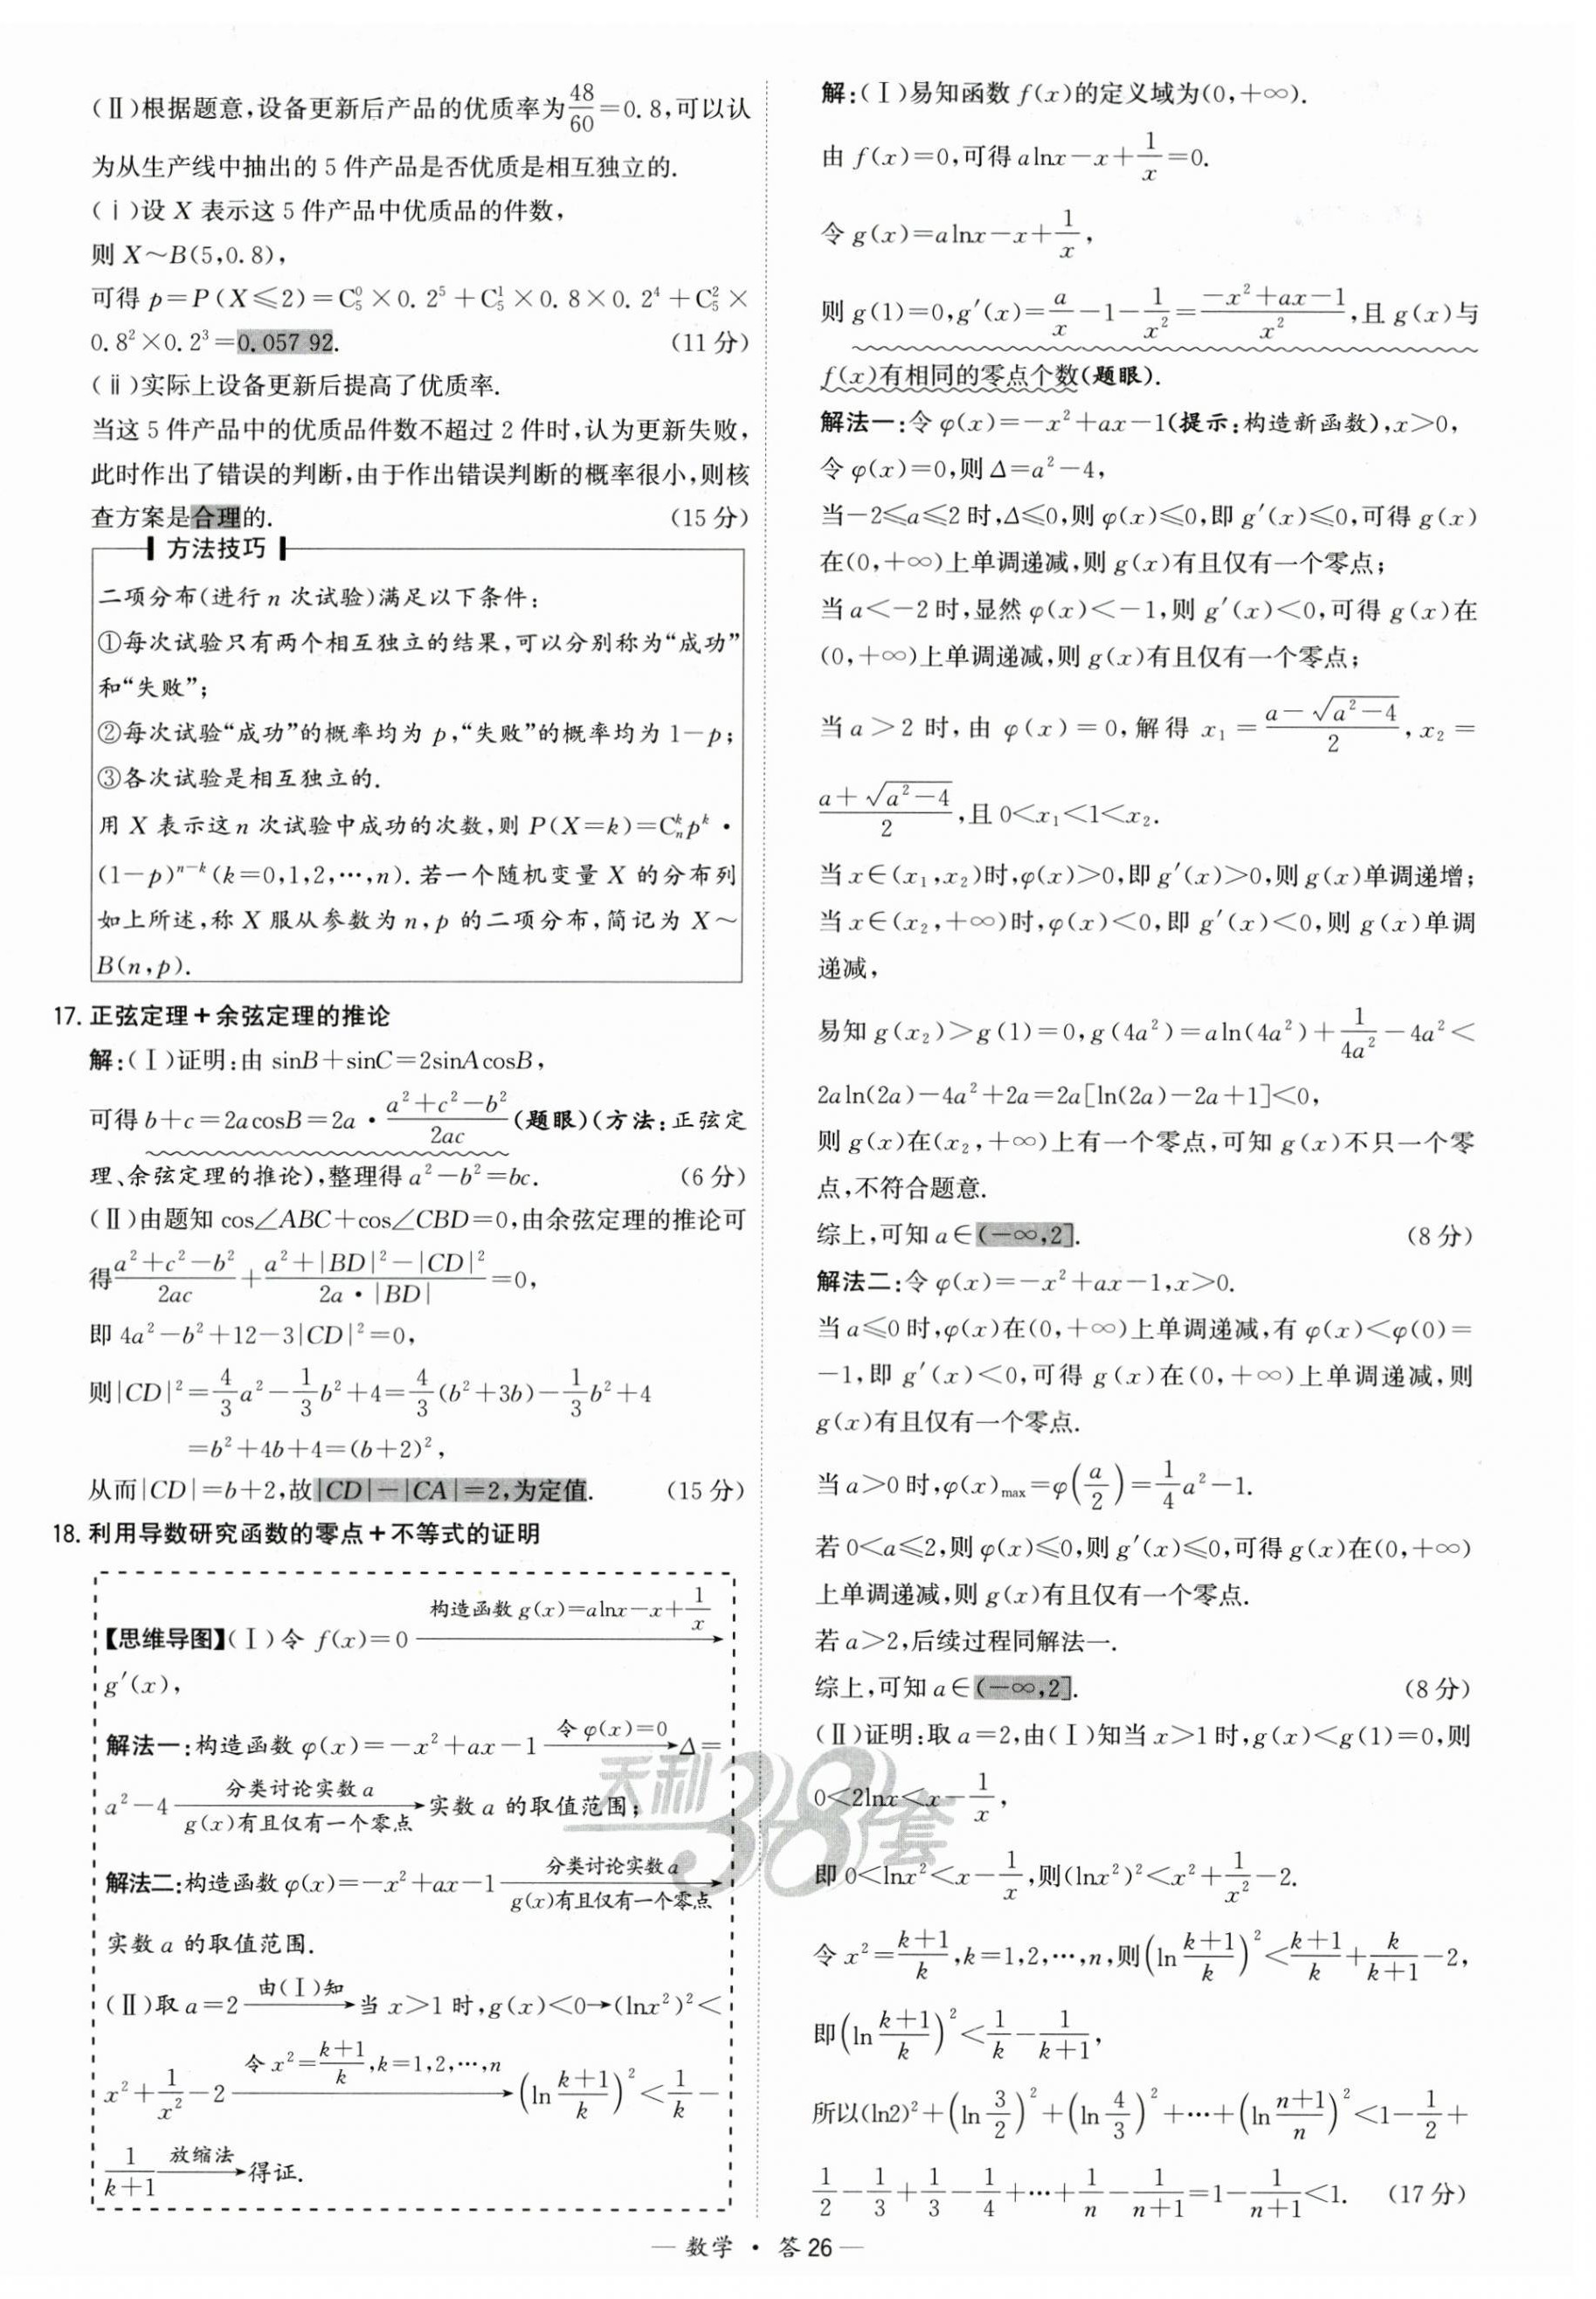 (Ⅱ)根据题意,设备更新后产品的优质率为48/60=0.8,可以认
为从生产线中抽出的5件产品是否优质是相互独立的.
(ⅰ)设X表示这5件产品中优质品的件数,
则X~B(5,0.8),
可得p=P(X≤2)=C₅⁰×0.2⁵+C₅¹×0.8×0.2⁴+C₅²×
0.8²×0.2³=0.057 92. (11分)
(ⅱ)实际上设备更新后提高了优质率.
当这5件产品中的优质品件数不超过2件时,认为更新失败,
此时作出了错误的判断,由于作出错误判断的概率很小,则核
查方案是合理的. (15分)
方法技巧
二项分布(进行n次试验)满足以下条件:
①每次试验只有两个相互独立的结果,可以分别称为“成功”
和“失败”;
②每次试验“成功”的概率均为p,“失败”的概率均为1-p;
③各次试验是相互独立的.
用X表示这n次试验中成功的次数,则P(X=k)=Cₙᵏpᵏ·
(1-p)ⁿ⁻ᵏ(k=0,1,2,…,n).若一个随机变量X的分布列
如上所述,称X服从参数为n,p的二项分布,简记为X~
B(n,p).
17.正弦定理+余弦定理的推论
解:(Ⅰ)证明:由sinB+sinC=2sinAcosB,
可得b+c=2acosB=2a·(a²+c²-b²)/2ac(题眼)(方法:正弦定
理、余弦定理的推论),整理得a²-b²=bc. (6分)
(Ⅱ)由题知cos∠ABC+cos∠CBD=0,由余弦定理的推论可
得(a²+c²-b²)/2ac+(a²+|BD|²-|CD|²)/(2a·|BD|)=0,
即4a²-b²+12-3|CD|²=0,
则|CD|²=4/3a²-1/3b²+4=4/3(b²+3b)-1/3b²+4
=b²+4b+4=(b+2)²,
从而|CD|=b+2,故|CD|-|CA|=2,为定值. (15分)
18.利用导数研究函数的零点+不等式的证明
【思维导图】(Ⅰ)令f(x)=0 构造函数g(x)=alnx-x+1/x→
g′(x),
解法一:构造函数φ(x)=-x²+ax-1 令φ(x)=0→Δ=
a²-4 分类讨论实数a g(x)有且仅有一个零点→实数a的取值范围;
解法二:构造函数φ(x)=-x²+ax-1 分类讨论实数a g(x)有且仅有一个零点→
实数a的取值范围.
(Ⅱ)取a=2 由(Ⅰ)知→当x>1时,g(x)<0→(lnx²)²<
x²+1/x²-2 令x²=(k+1)/k,k=1,2,…,n→(ln(k+1)/k)²<1/k-
1/(k+1) 放缩法→得证.
解:(Ⅰ)易知函数f(x)的定义域为(0,+∞).
由f(x)=0,可得alnx-x+1/x=0.
令g(x)=alnx-x+1/x,
则g(1)=0,g′(x)=a/x-1-1/x²=(-x²+ax-1)/x²,且g(x)与
f(x)有相同的零点个数(题眼).
解法一:令φ(x)=-x²+ax-1(提示:构造新函数),x>0,
令φ(x)=0,则Δ=a²-4,
当-2≤a≤2时,Δ≤0,则φ(x)≤0,即g′(x)≤0,可得g(x)
在(0,+∞)上单调递减,则g(x)有且仅有一个零点;
当a<-2时,显然φ(x)<-1,则g′(x)<0,可得g(x)在
(0,+∞)上单调递减,则g(x)有且仅有一个零点;
当a>2时,由φ(x)=0,解得x₁=(a-√(a²-4))/2,x₂=
(a+√(a²-4))/2,且0<x₁<1<x₂.
当x∈(x₁,x₂)时,φ(x)>0,即g′(x)>0,则g(x)单调递增;
当x∈(x₂,+∞)时,φ(x)<0,即g′(x)<0,则g(x)单调
递减,
易知g(x₂)>g(1)=0,g(4a²)=aln(4a²)+1/4a²-4a²<
2aln(2a)-4a²+2a=2a[ln(2a)-2a+1]<0,
则g(x)在(x₂,+∞)上有一个零点,可知g(x)不只一个零
点,不符合题意.
综上,可知a∈(-∞,2]. (8分)
解法二:令φ(x)=-x²+ax-1,x>0.
当a≤0时,φ(x)在(0,+∞)上单调递减,有φ(x)<φ(0)=
-1,即g′(x)<0,可得g(x)在(0,+∞)上单调递减,则
g(x)有且仅有一个零点.
当a>0时,φ(x)max=φ(a/2)=1/4a²-1.
若0<a≤2,则φ(x)≤0,则g′(x)≤0,可得g(x)在(0,+∞)
上单调递减,则g(x)有且仅有一个零点.
若a>2,后续过程同解法一.
综上,可知a∈(-∞,2]. (8分)
(Ⅱ)证明:取a=2,由(Ⅰ)知当x>1时,g(x)<g(1)=0,则
0<2lnx<x-1/x,
即0<lnx²<x-1/x,则(lnx²)²<x²+1/x²-2.
令x²=(k+1)/k,k=1,2,…,n,则(ln(k+1)/k)²<(k+1)/k+k/(k+1)-2,
即(ln(k+1)/k)²<1/k-1/(k+1),
所以(ln2)²+(ln3/2)²+(ln4/3)²+…+(ln(n+1)/n)²<1-1/2+
1/2-1/3+1/3-1/4+…+1/n-1/(n+1)=1-1/(n+1)<1. (17分)
天利38套
— 数学 · 答26 —